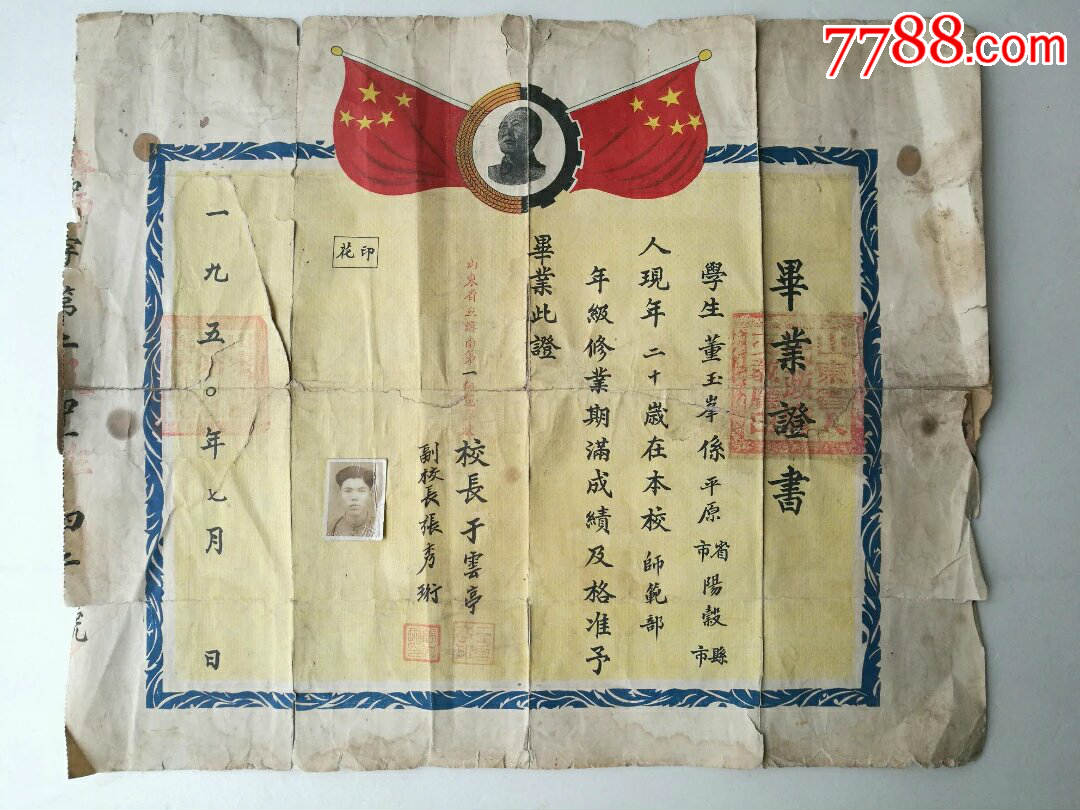 7788.com
畢業證書
學生董玉峯係平原省市陽穀縣市
人現年二十歲在本校師範部
年級修業期滿成績及格准予
畢業此證
山東省立聊南第一
校長于雲亭
副校長張秀珩
印花
一九五〇年七月 日
字第 四 號